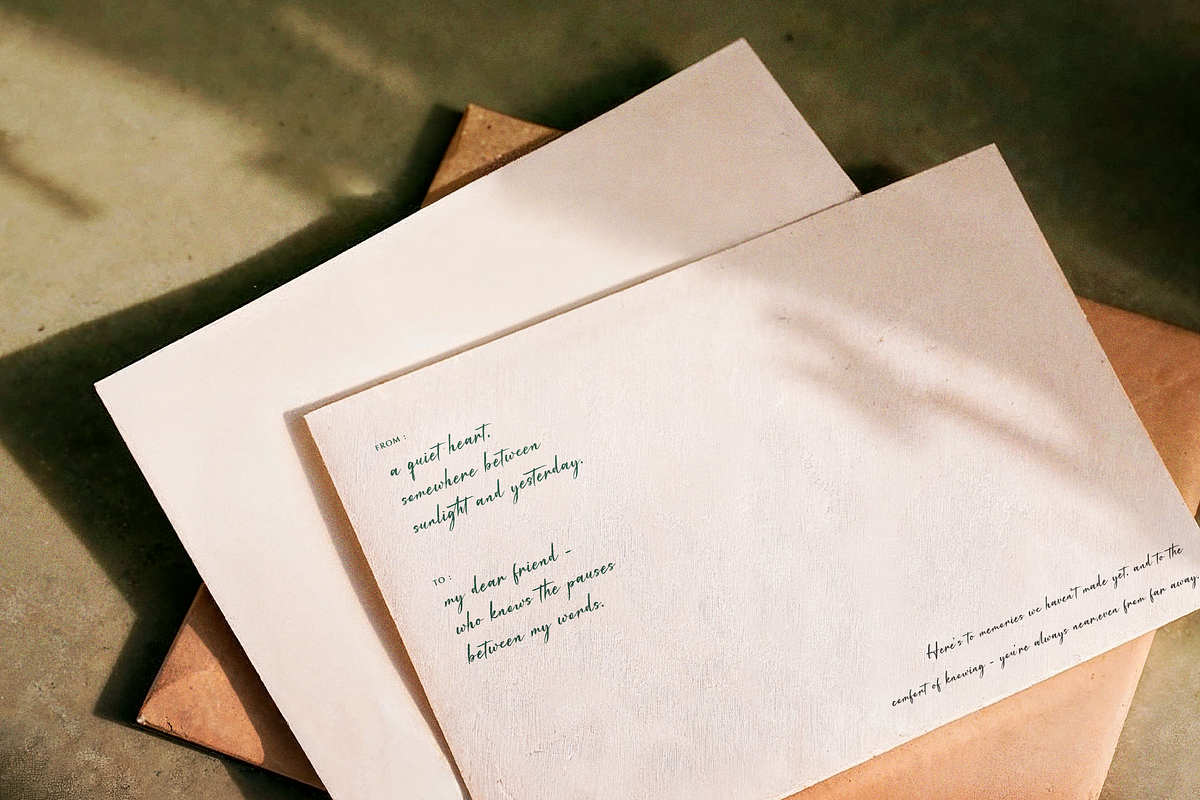 FROM :
a quiet heart,
somewhere between
sunlight and yesterday.
TO :
my dear friend -
who knows the pauses
between my words.
Here's to memories we haven't made yet, and to the
comfort of knowing - you're always near,even from far away.